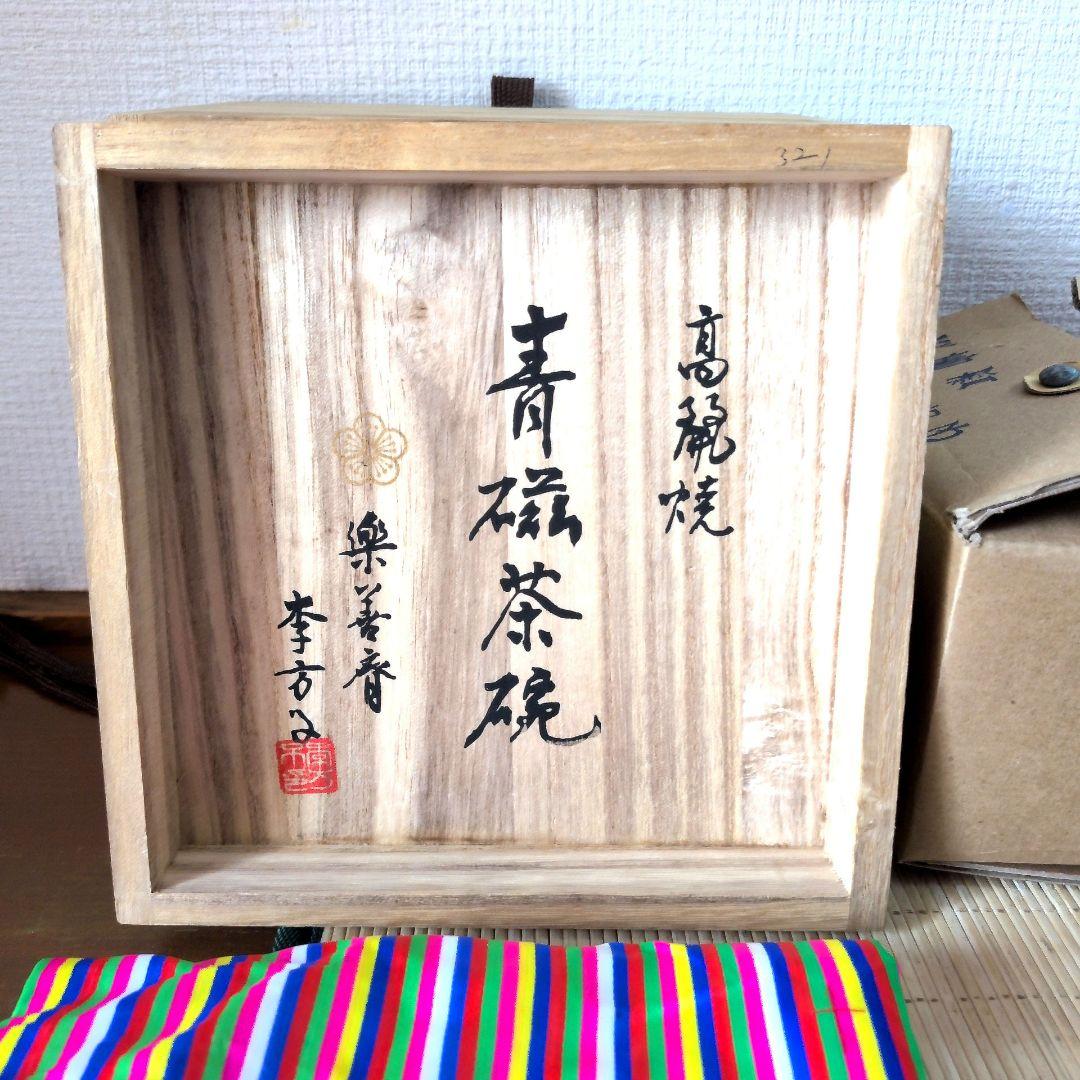 高麗焼
青磁茶碗
樂善齋
李方子
321